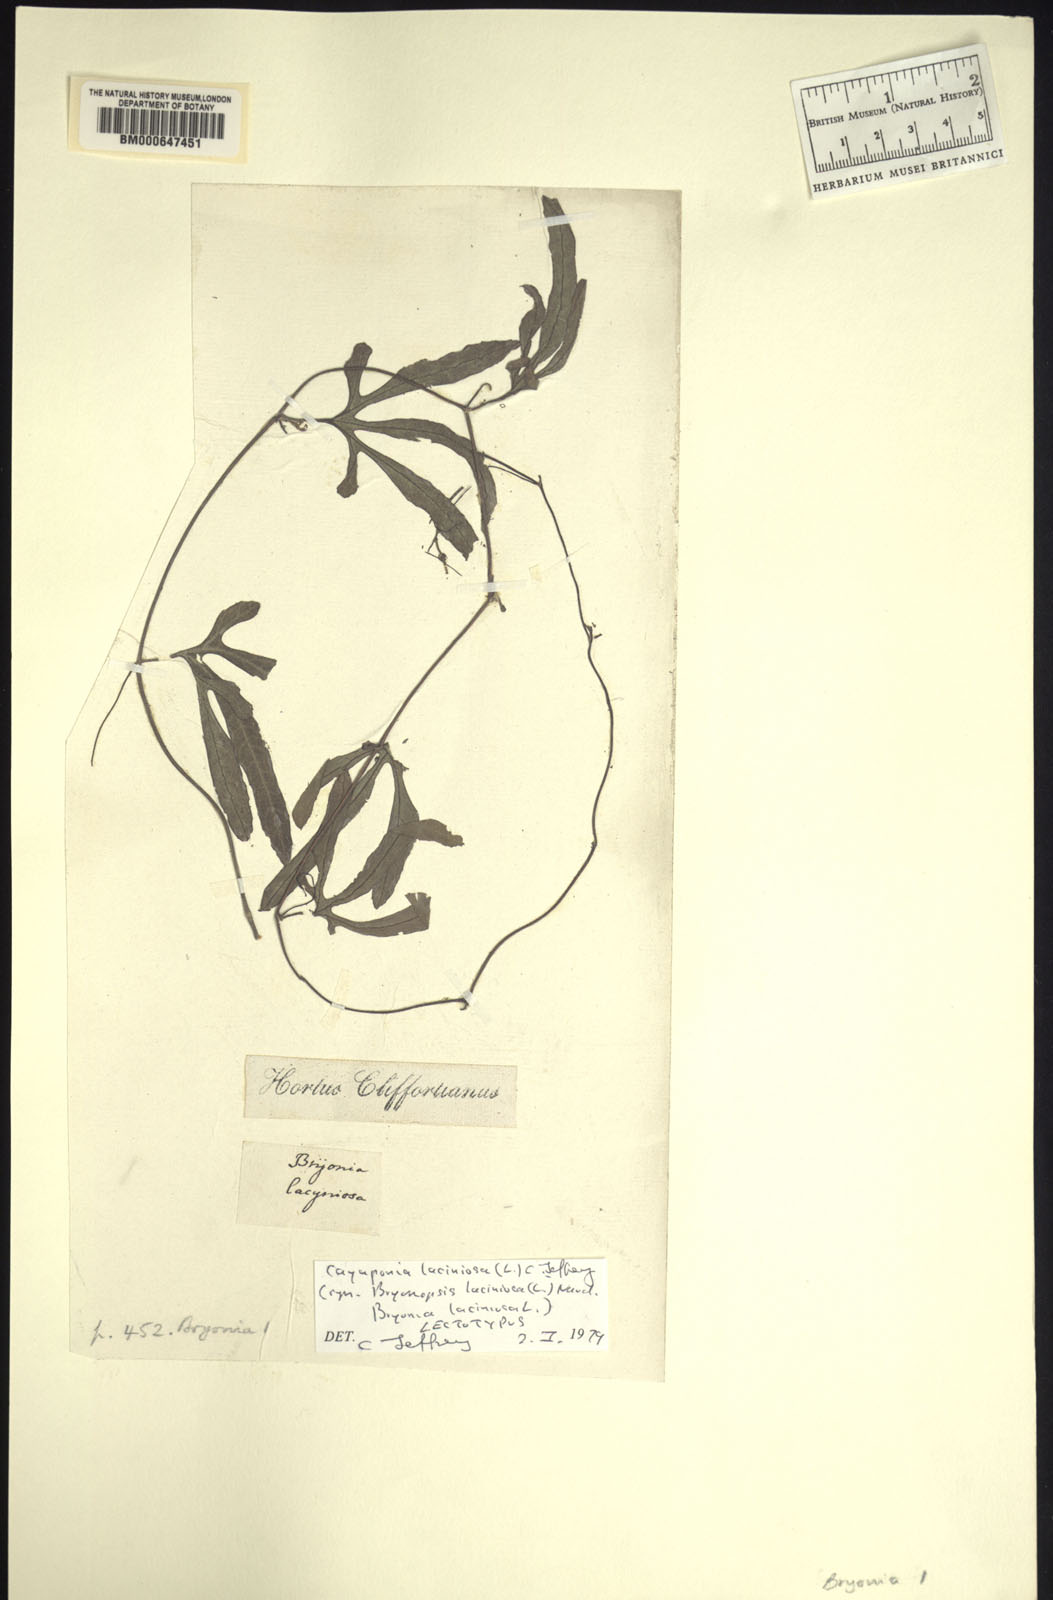 THE NATURAL HISTORY MUSEUM, LONDON
DEPARTMENT OF BOTANY
BM000647451
1 2
BRITISH MUSEUM (NATURAL HISTORY)
1 2 3 4 5
HERBARIUM MUSEI BRITANNICI
Hortus Cliffortianus
Bryonia
lacyniosa
Cayaponia laciniosa (L.) C. Jeffrey
(syn. Bryonopsis laciniosa (L.) Naud.
Bryonia laciniosa L.)
LECTOTYPUS
DET. C Jeffrey 1979
p. 452. Bryonia 1
Bryonia 1